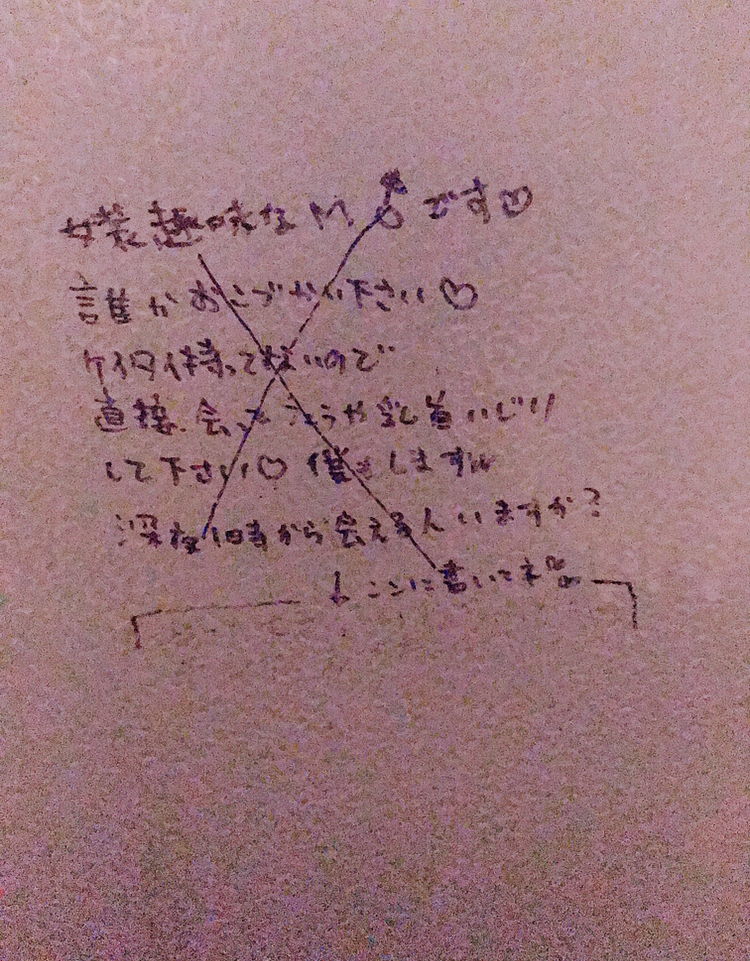 女装趣味な M♂です♡
誰かおこづかい下さい♡
ケイ代持ってないので
直接会って ちょうや乳首いじり
して下さい♡ 僕もしますw
深夜1時から会える人いますか?
↓ ここに書いてネ